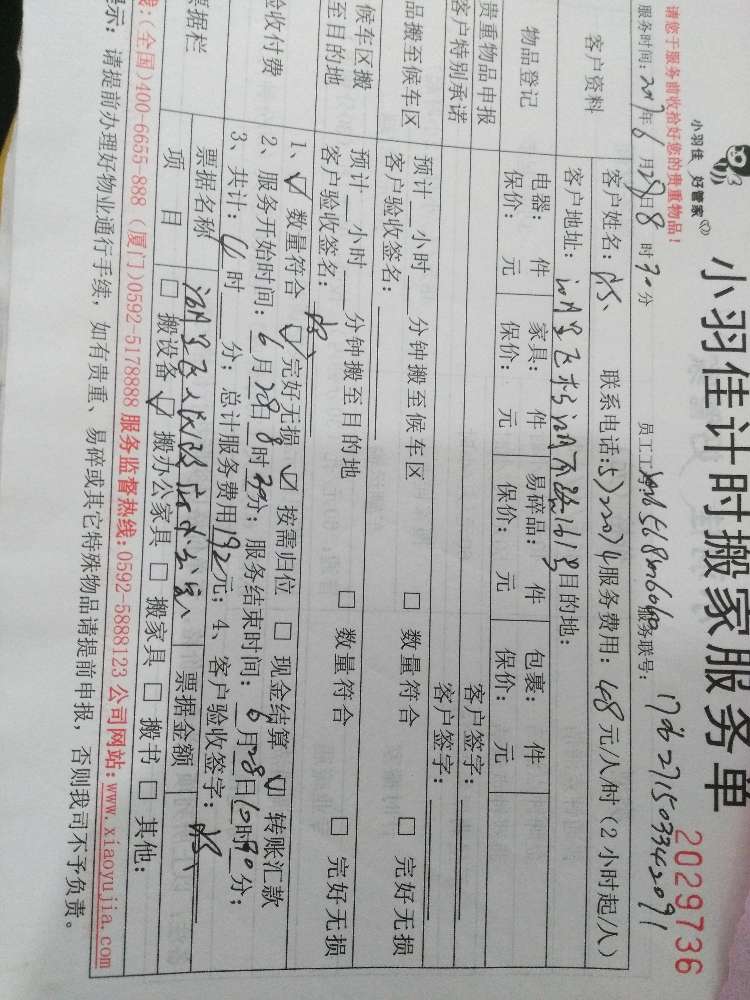 小羽佳 好管家
小羽佳计时搬家服务单
2029736
请您于服务前收拾好您的贵重物品!
服务时间: 2017年6月28日8时30分 员工工号: 服务联号:
客户资料
客户姓名: 联系电话: 服务费用: 48元/人/时(2小时起/人)
客户地址: 1619号 目的地:
物品登记
电器: 件 家具: 件 易碎品: 件 包裹: 件
保价: 元 保价: 元 保价: 元 保价: 元
贵重物品申报 客户签字:
客户特别承诺 客户签字:
品搬至候车区
预计__小时__分钟搬至候车区 □ 数量符合 □ 完好无损
客户验收签名:
候车区搬
至目的地
预计__小时__分钟搬至目的地 □ 数量符合 □ 完好无损
客户验收签名:
验收付费
1、☑ 数量符合 ☑ 完好无损 ☑ 按需归位 □ 现金结算 ☑ 转账汇款
2、服务开始时间: 6月28日8时30分; 服务结束时间: 6月28日10时30分;
3、共计: 4时__分; 总计服务费用192元; 4、客户验收签字:
票据栏
票据名称 票据金额
项 目 □ 搬设备 ☑ 搬办公家具 □ 搬家具 □ 搬书 □ 其他:
线:(全国)400-6655-888 (厦门)0592-5178888 服务监督热线:0592-5888123 公司网站:www.xiaoyujia.com
提示: 请提前办理好物业通行手续, 如有贵重、易碎或其它特殊物品请提前申报, 否则我司不予负责。